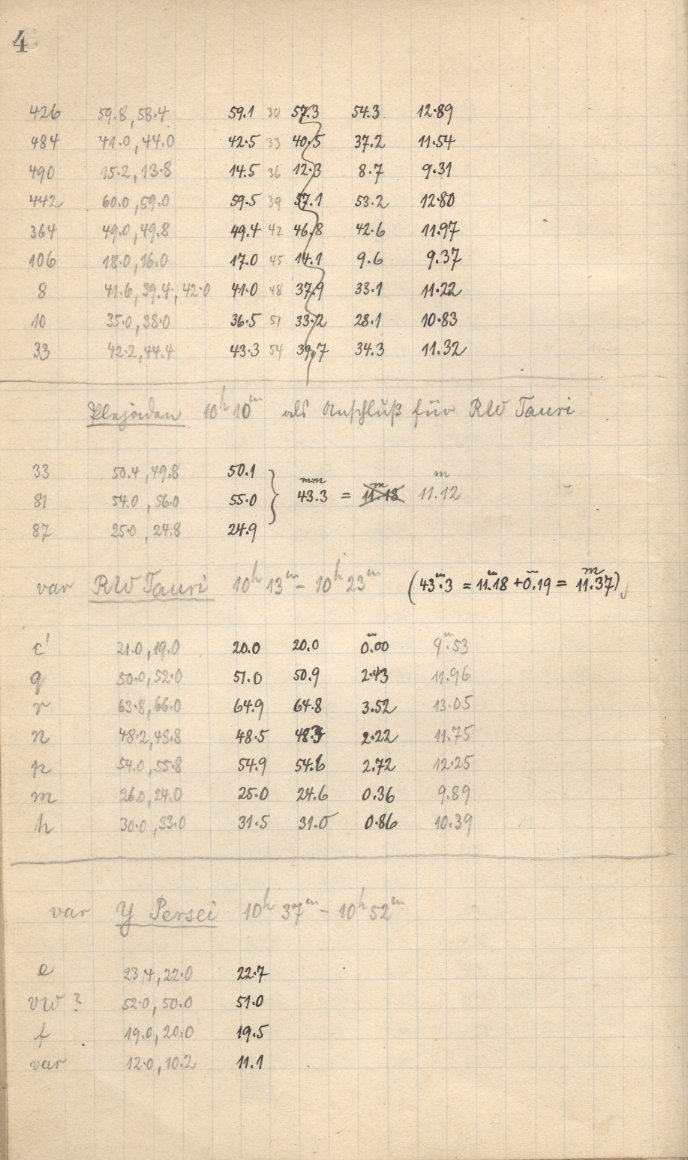 4
426 59.8, 58.4 59.1 30 57.3 54.3 12.89
484 41.0, 44.0 42.5 33 40.5 37.2 11.54
490 15.2, 13.8 14.5 36 12.3 8.7 9.31
442 60.0, 59.0 59.5 39 57.1 53.2 12.80
364 49.0, 49.8 49.4 42 46.8 42.6 11.97
106 18.0, 16.0 17.0 45 14.1 9.6 9.37
8 41.6, 39.4, 42.0 41.0 48 37.9 33.1 11.22
10 35.0, 38.0 36.5 51 33.2 28.1 10.83
33 42.2, 44.4 43.3 54 39.7 34.3 11.32
Plejaden 10h 10m als Anschluß für RW Tauri
33 50.4, 49.8 50.1
81 54.0, 56.0 55.0 } 43.3mm = 11.18m 11.12m
87 25.0, 24.8 24.9
var RW Tauri 10h 13m – 10h 23m (43m.3 = 11m.18 + 0m.19 = 11m.37)
c' 21.0, 19.0 20.0 20.0 0m.00 9m.53
q 50.0, 52.0 51.0 50.9 2.43 11.96
r 63.8, 66.0 64.9 64.8 3.52 13.05
n 48.2, 48.8 48.5 48.3 2.22 11.75
p 54.0, 55.8 54.9 54.6 2.72 12.25
m 26.0, 24.0 25.0 24.6 0.36 9.89
h 30.0, 33.0 31.5 31.0 0.86 10.39
var Y Persei 10h 37m – 10h 52m
e 23.4, 22.0 22.7
vw? 52.0, 50.0 51.0
f 19.0, 20.0 19.5
var 12.0, 10.2 11.1